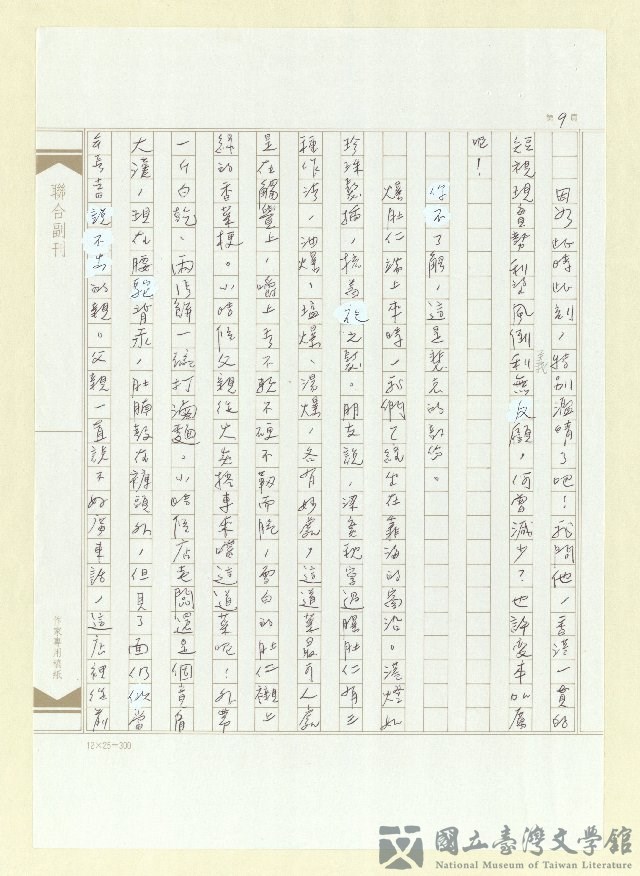 第9頁
因為此時此刻，特別濫情了吧！我問他，香港一貫的
短視現實勢利波風倒利無義反顧，何曾減少？也許變本加厲
吧！
你不了解，這是雙方的部份。
爆肚仁端上來時，我們已經坐在靠海的窗沿。港燈如
珍珠鑿插，撓為砣之裂。朋友說，深負秋學過爆肚仁有三
種作湾，油爆、塩爆、湯爆，各有好處，這道菜最可人處
是在觸覺上，嚼上去不軟不硬不韌而脆，雪白的肚仁襯上
綠的香菜梗。小時候父親從大矣搭車來嚐這道菜呢！外帶
一斤白乾、兩張餅一碗打滷麵。小時候店老闆還是個直肩
大漢，現在腰駝背汞，肚腩鼓在褲頭外，但見了面仍似當
年壽喜說不出的親。父親一直說不好廣東話，這店裡從前
聯合副刊
作家專用稿紙
12×25=300
國立臺灣文學館
National Museum of Taiwan Literature